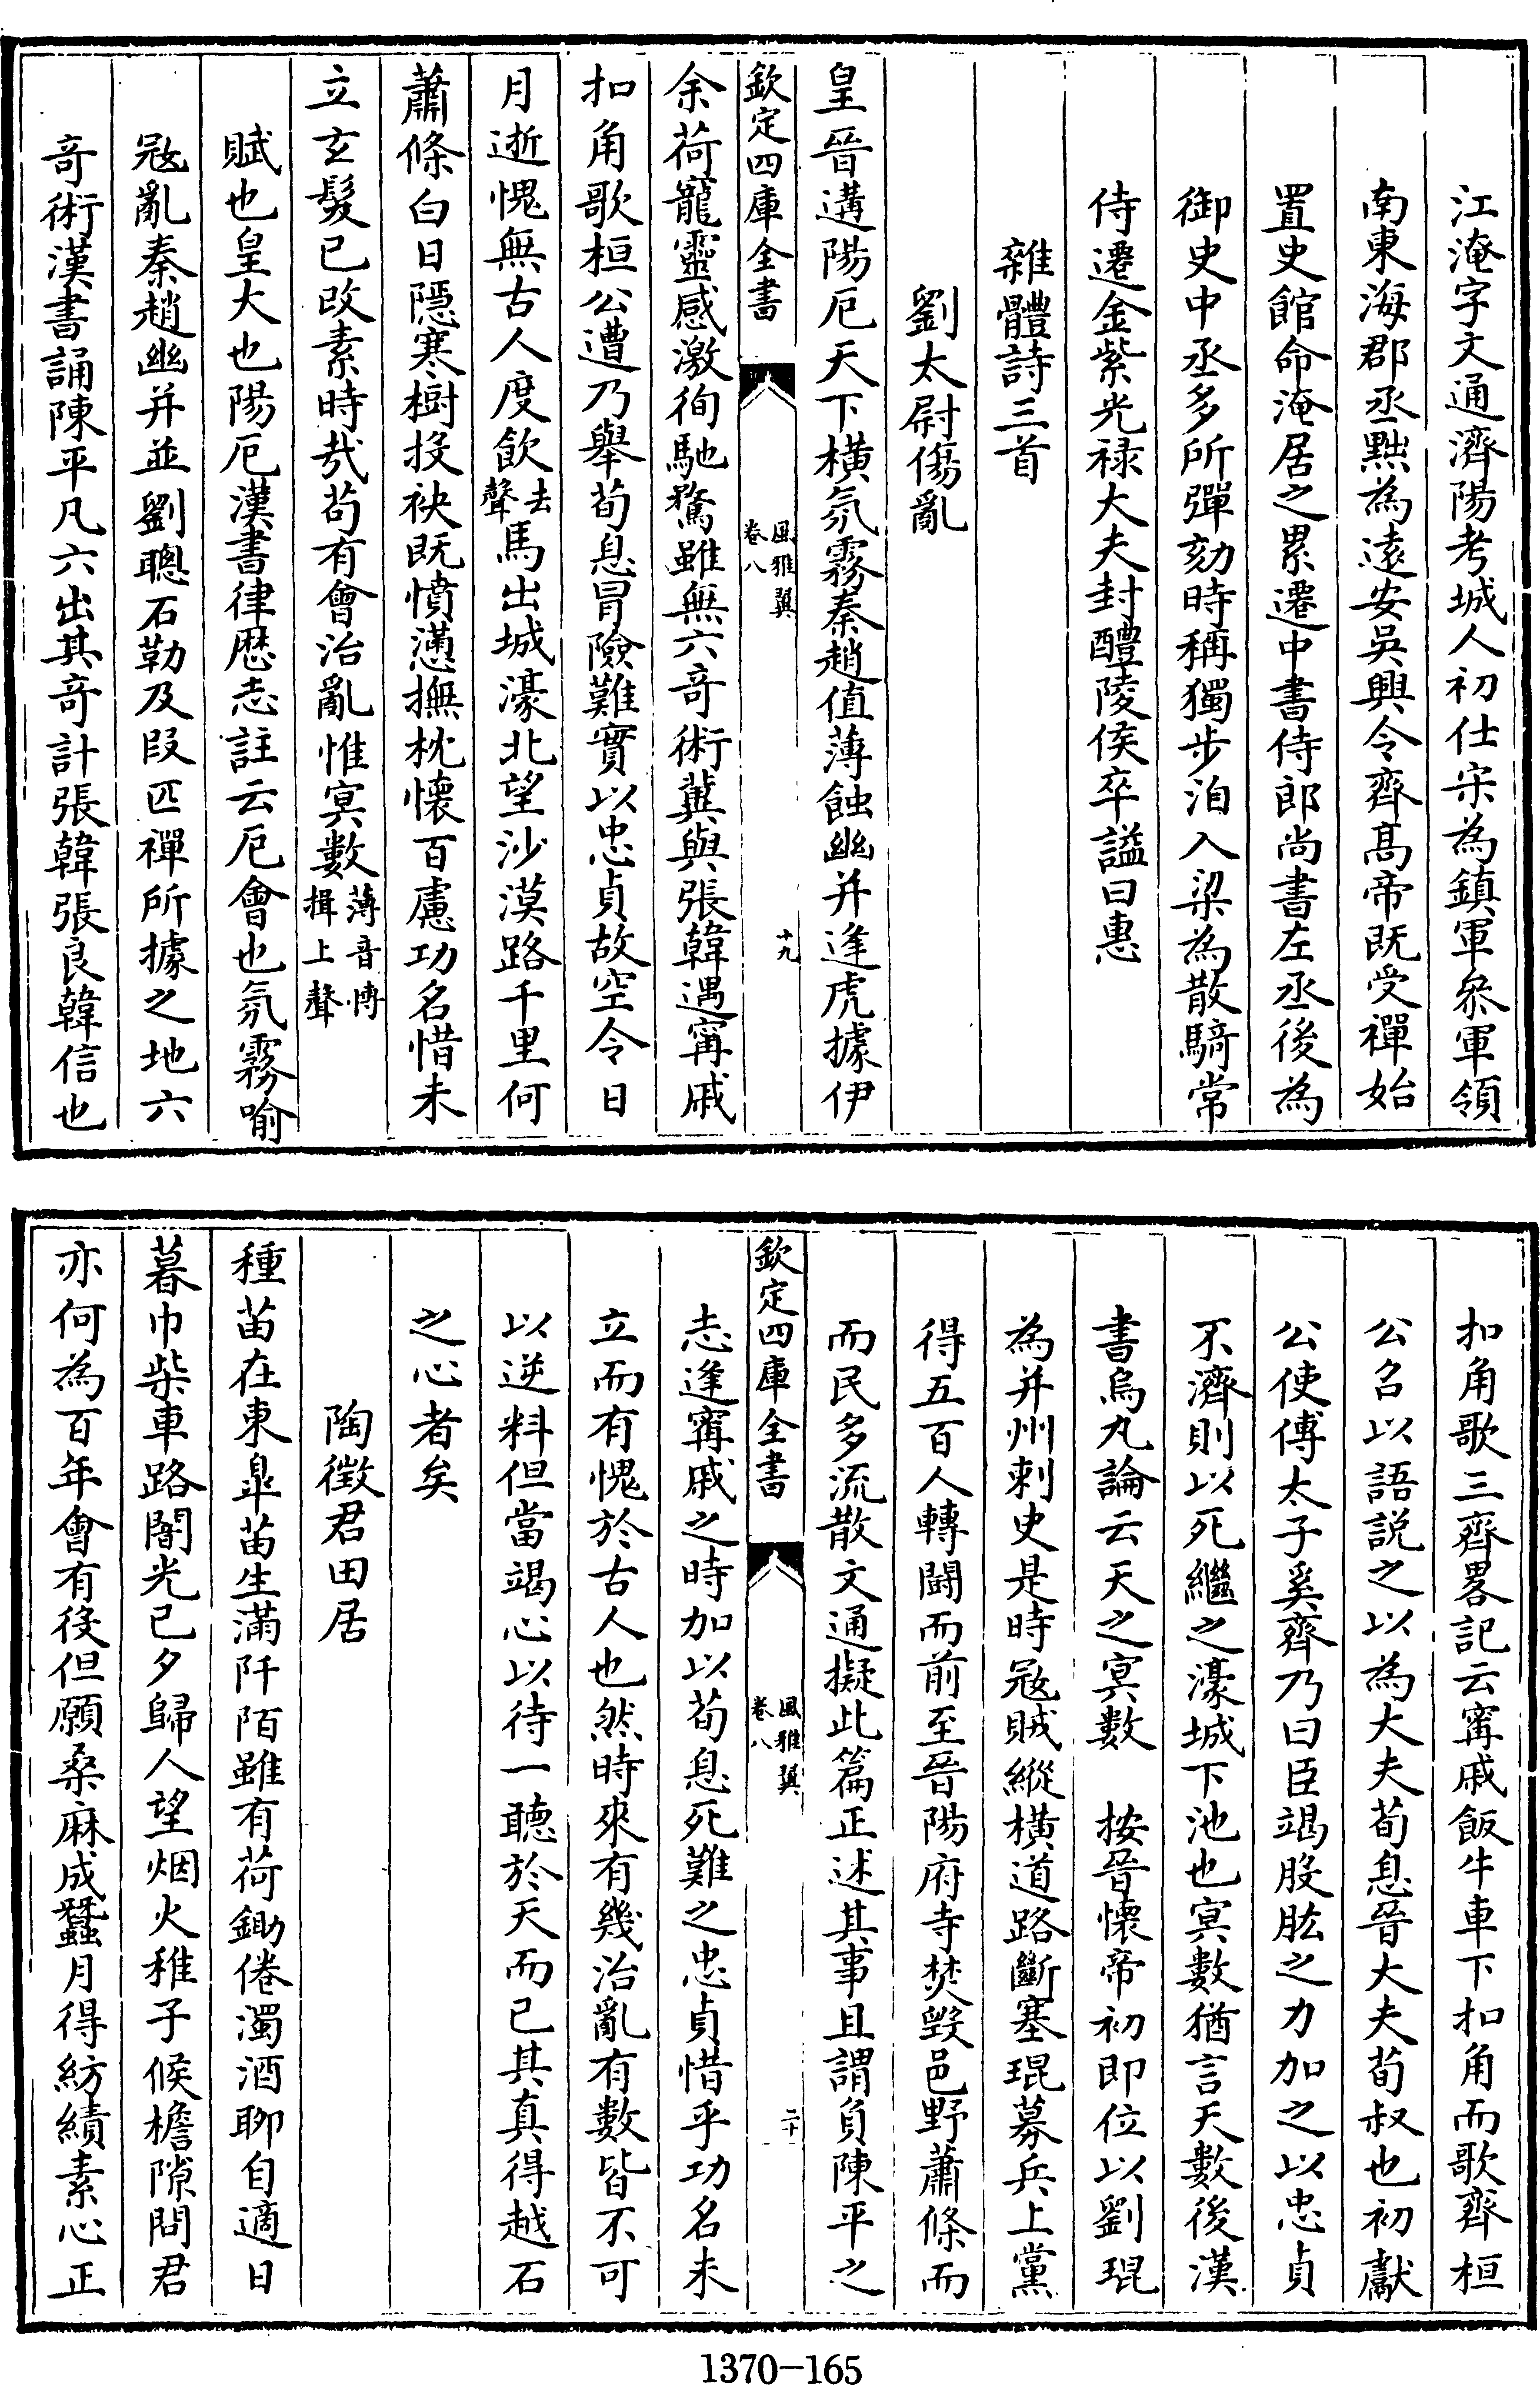 江淹字文通濟陽考城人初仕宋為鎮軍叅軍領
南東海郡丞黜為逺安吳興令齊髙帝既受禪始
置史館命淹居之累遷中書侍郎尚書左丞後為
御史中丞多所彈劾時稱獨步洎入梁為散騎常
侍遷金紫光禄大夫封醴陵侯卒謚曰惠
雜體詩三首
劉太尉傷亂
皇晉遘陽厄天下横氛霧秦趙值薄蝕幽并逢虎據伊
欽定四庫全書
風雅翼
卷八
十九
余荷寵靈感激徇馳騖雖無六竒術冀與張韓遇甯戚
扣角歌桓公遭乃舉荀息冒險難實以忠貞故空令日
月逝愧無古人度飲去聲馬出城濠北望沙漠路千里何
蕭條白日隠寒樹投袂既憤懣撫枕懷百慮功名惜未
立玄髮已改素時哉苟有會治亂惟冥數薄音慱揖上聲
賦也皇大也陽厄漢書律厯志註云厄會也氛霧喻
冦亂秦趙幽并並劉聰石勒及段匹禪所據之地六
竒術漢書誦陳平凡六出其竒計張韓張良韓信也
扣角歌三齊畧記云甯戚飯牛車下扣角而歌齊桓
公召以語説之以為大夫荀息晉大夫荀叔也初獻
公使傅太子奚齊乃曰臣竭股肱之力加之以忠貞
不濟則以死繼之濠城下池也冥數猶言天數後漢
書烏丸論云天之冥數　按晉懷帝初即位以劉琨
為并州刺史是時冦賊縱横道路斷塞琨募兵上黨
得五百人轉鬬而前至晉陽府寺焚毁邑野蕭條而
而民多流散文通擬此篇正述其事且謂負陳平之
欽定四庫全書
風雅翼
卷八
二十
志逢甯戚之時加以荀息死難之忠貞惜乎功名未
立而有愧於古人也然時來有幾治亂有數皆不可
以逆料但當竭心以待一聽於天而已其真得越石
之心者矣
陶徵君田居
種苗在東臯苗生滿阡陌雖有荷鋤倦濁酒聊自適日
暮巾柴車路闇光已夕歸人望烟火稚子候檐隙問君
亦何為百年會有役但願桑麻成蠶月得紡績素心正
1370-165